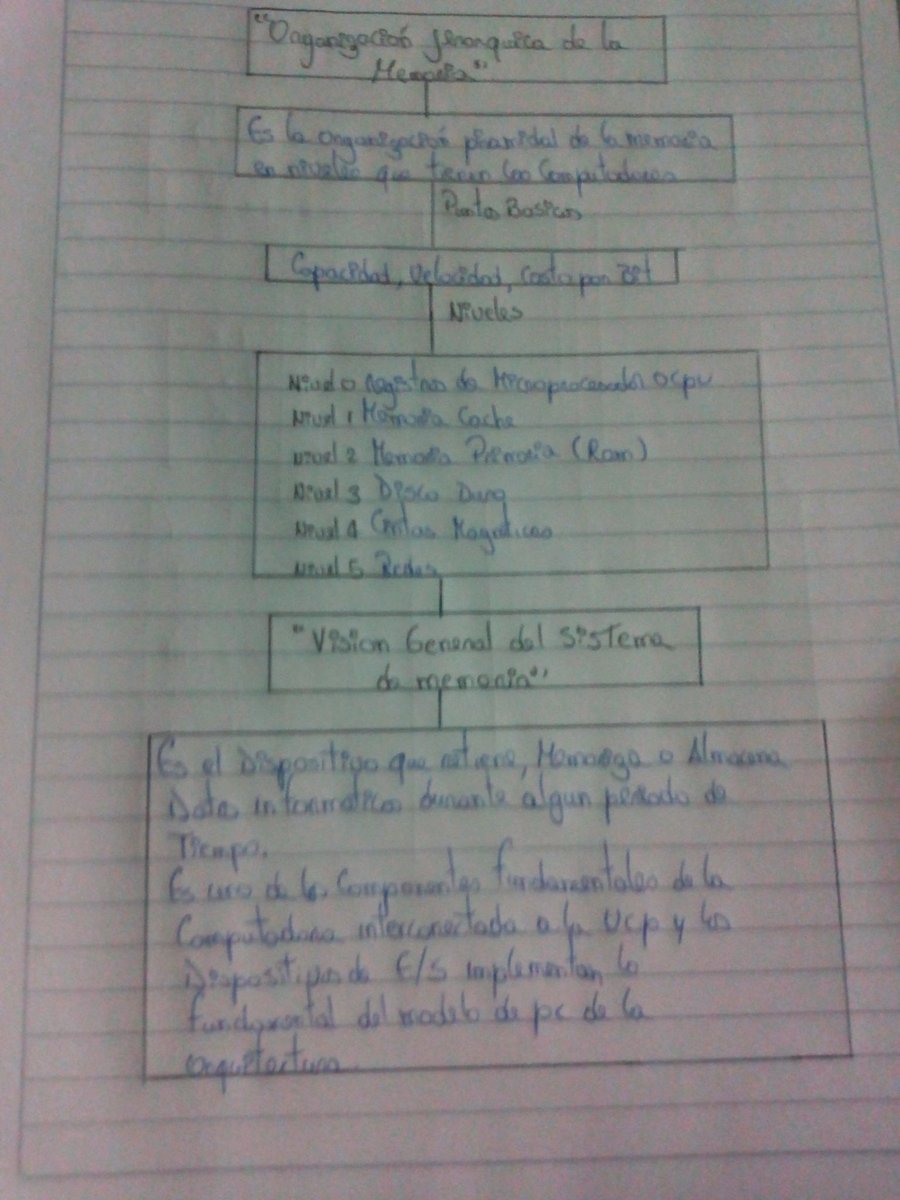 "Organización Jerarquica de la
Memoria"
Es la organización piramidal de la memoria
en niveles que tienen las Computadoras
Puntos Basicos
Capacidad, Velocidad, Costo por Bit
Niveles
Nivel 0 Registros de Microprocesador o cpu
Nivel 1 Memoria Cache
Nivel 2 Memoria Primaria (Ram)
Nivel 3 Disco Duro
Nivel 4 Cintas Magneticas
Nivel 5 Redes
"Vision General del Sistema
de memoria"
Es el Dispositivo que retiene, o Almacena
Datos informaticos durante algun periodo de
Tiempo.
Es uno de los Componentes fundamentales de la
Computadora interconectada a la Ucp y los
Dispositivos de E/S implementan lo
fundamental del modelo de pc de la
arquitectura